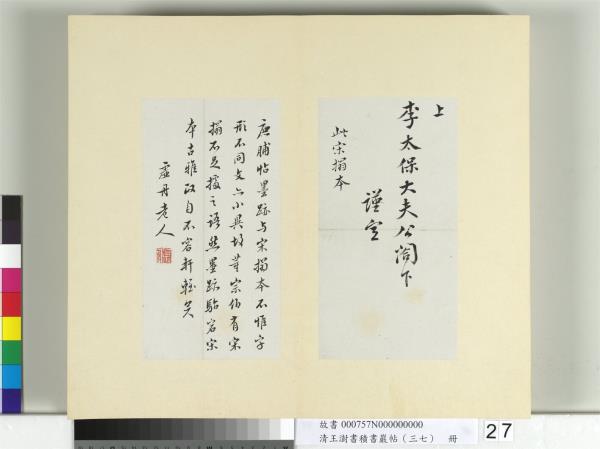 上
李太保大夫公閤下
謹空
此宋搨本
鹿脯帖墨跡与宋搨本不惟字
形不同文亦小異故董宗伯有宋
搨不足據之語然墨跡駘宕宋
本古雅政自不容軒輊矣
虛舟老人
故書 000757N000000000
清王澍書積書巖帖（三七） 冊
27